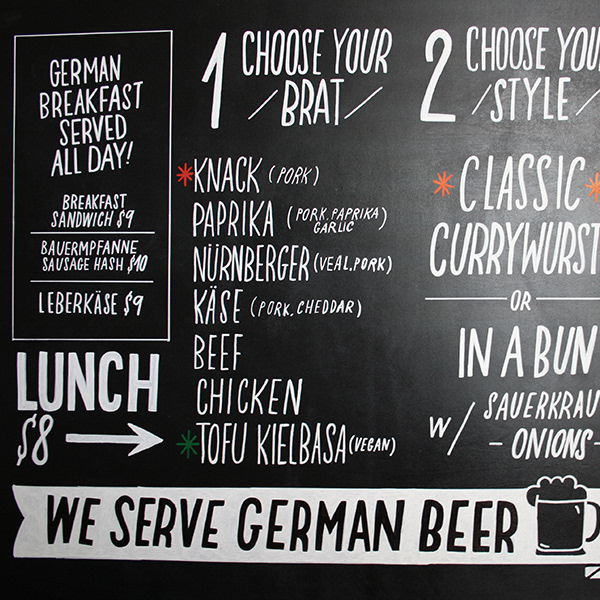 GERMAN
BREAKFAST
SERVED
ALL DAY!
BREAKFAST
SANDWICH $9
BAUERMPFANNE
SAUSAGE HASH $10
LEBERKÄSE $9
LUNCH
$8
1 CHOOSE YOUR
/BRAT/
*KNACK (PORK)
PAPRIKA (PORK, PAPRIKA)
GARLIC
NÜRNBERGER (VEAL, PORK)
KÄSE (PORK, CHEDDAR)
BEEF
CHICKEN
*TOFU KIELBASA (VEGAN)
2 CHOOSE YOU
/STYLE/
*CLASSIC*
CURRYWURST
OR
IN A BUN
W/ SAUERKRAU
- ONIONS -
WE SERVE GERMAN BEER